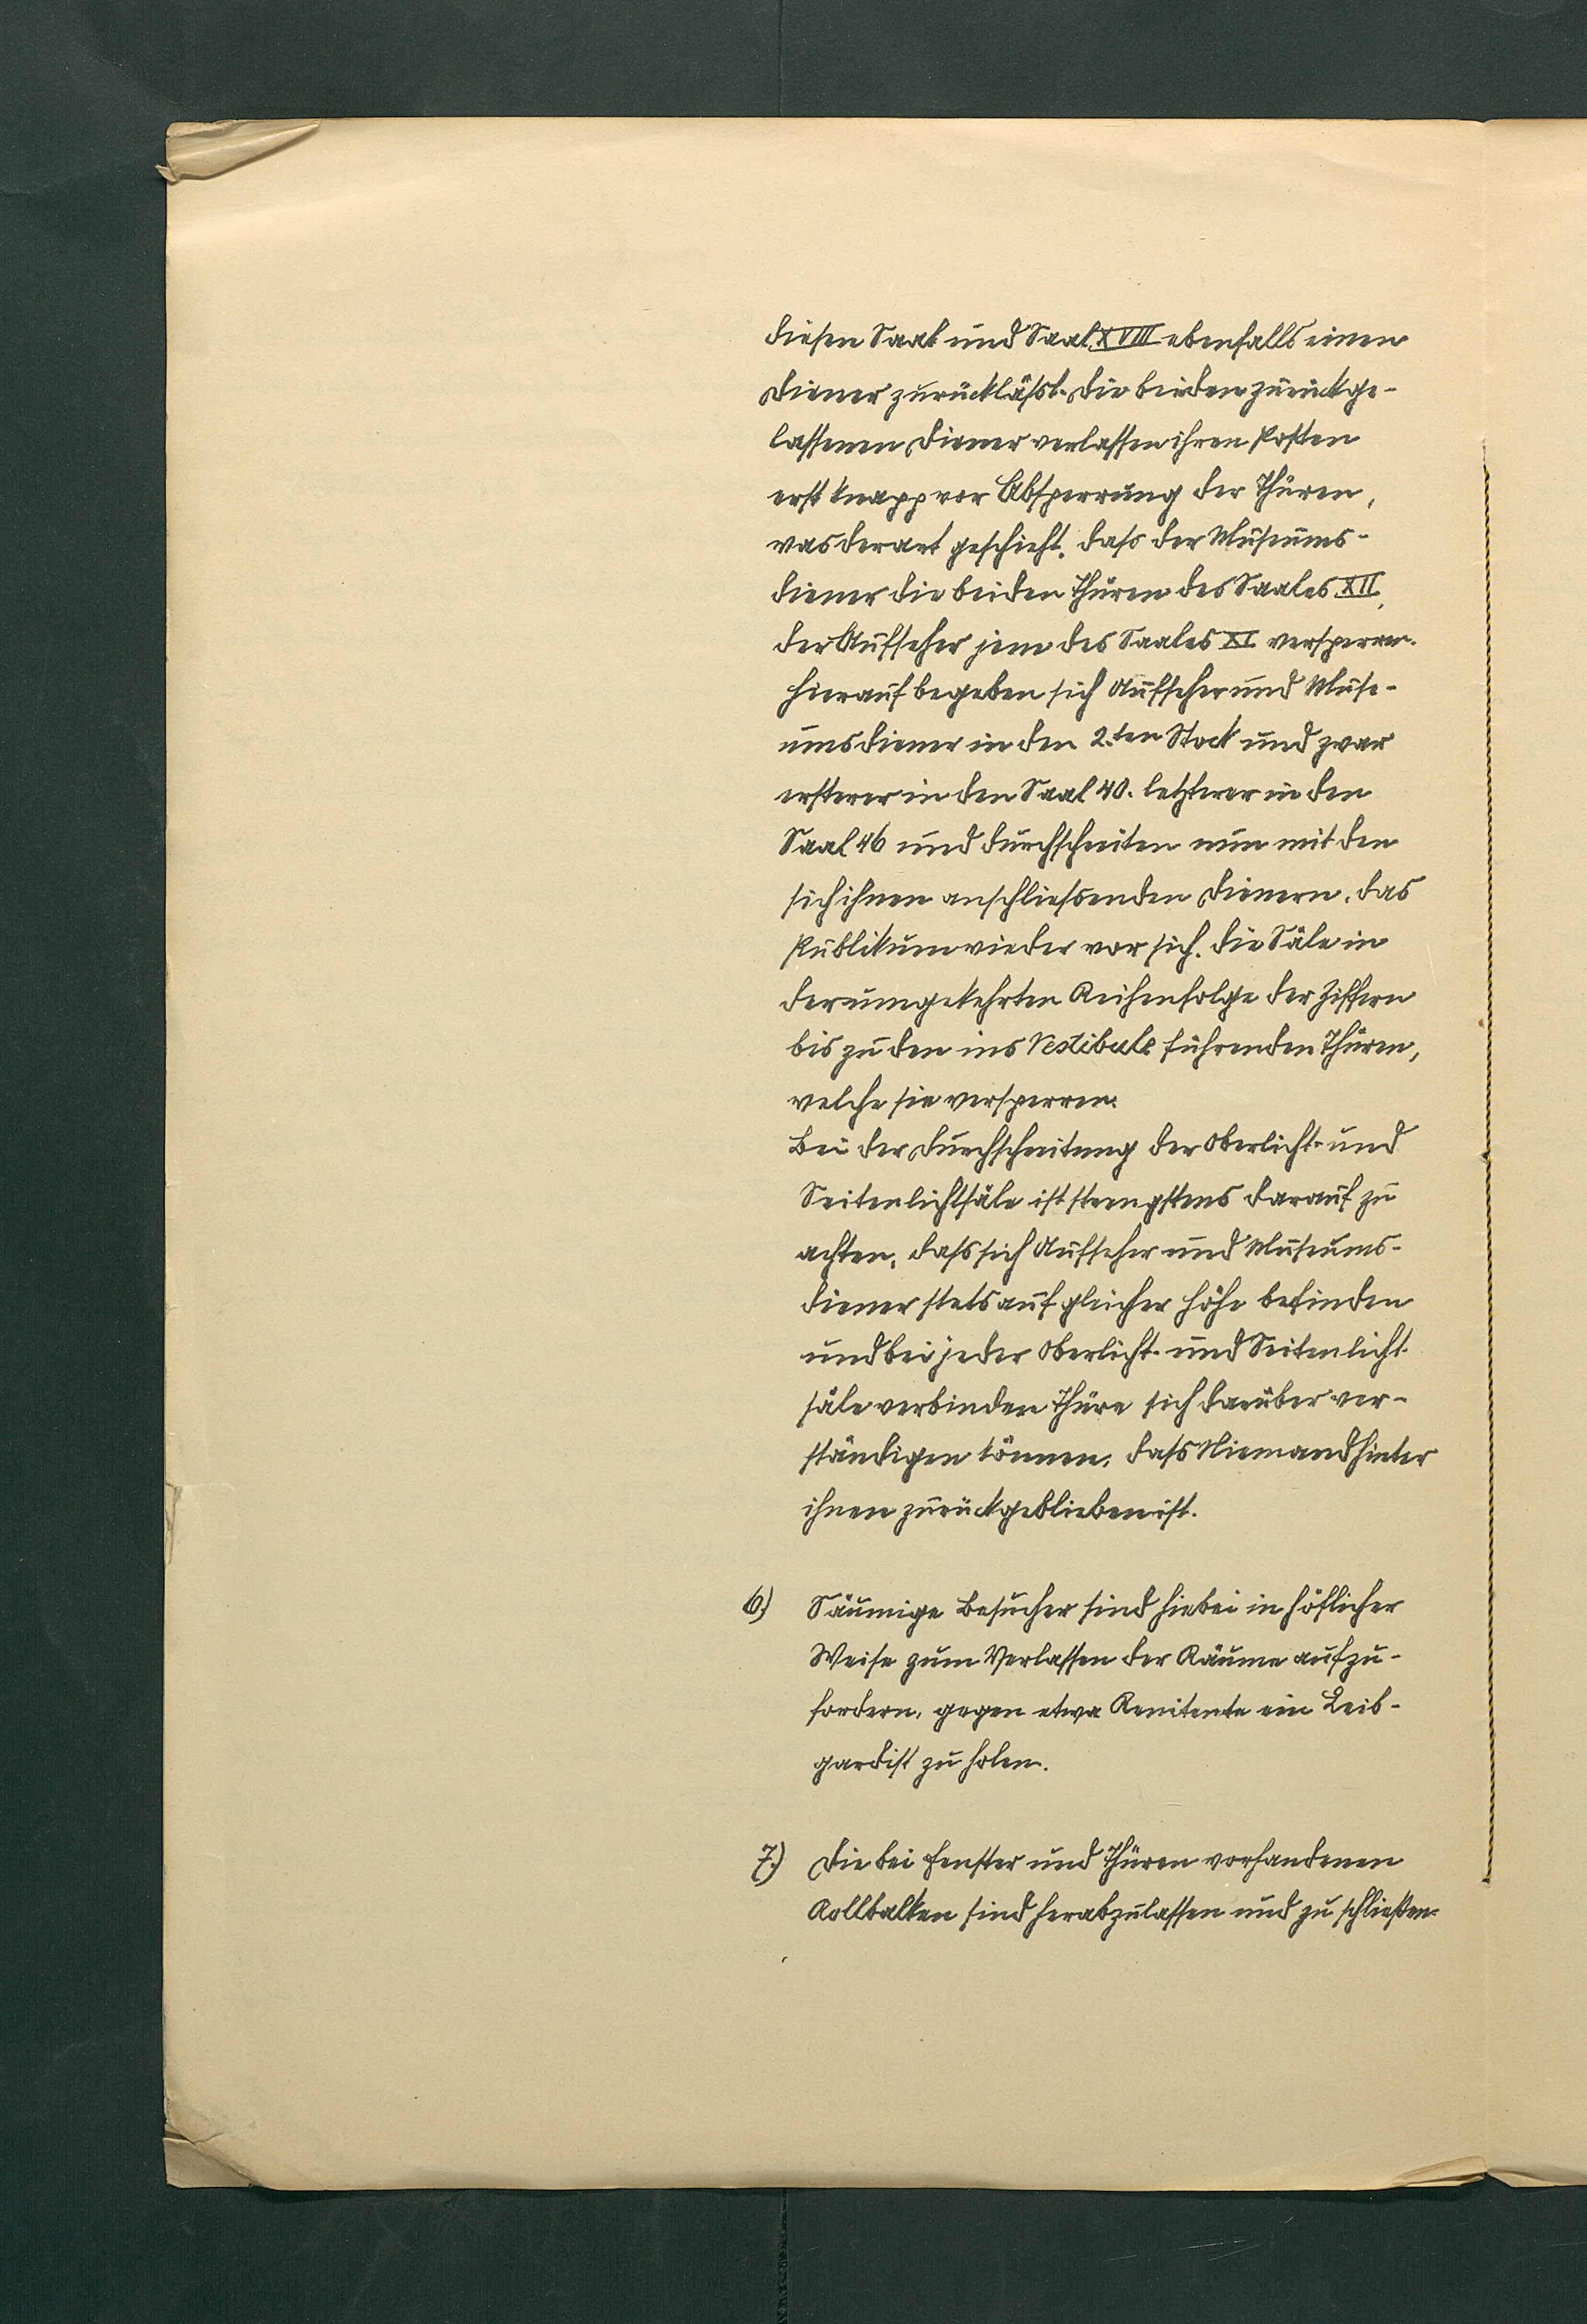 diesen Saal und Saal XVIII ebenfalls einen
Diener zurückläßt. Die beiden zurückge-
lassenen Diener verlassen ihren Posten
erst knapp vor Absperrung der Thüren,
was derart geschieht, dass der Museums-
diener die beiden Thüren des Saales XII,
der Aufseher jene des Saales XI versperren.
Hierauf begeben sich Aufseher und Muse-
umsdiener in den 2.ten Stock und zwar
ersterer in den Saal 40. letzterer in den
Saal 46 und durchschreiten nun mit den
sich ihnen anschließenden Dienern, das
Publikum wieder vor sich, die Säle in
der umgekehrten Reihenfolge der Ziffern
bis zu den ins Vestibule führenden Thüren,
welche sie versperren.
Bei der Durchschreitung der Oberlicht- und
Seitenlichtsäle ist strengstens darauf zu
achten, daß sich Aufseher und Museums-
diener stets auf gleicher Höhe befinden
und bei jeder Oberlicht- und Seitenlicht-
säle verbinden Thüre sich darüber ver-
ständigen können, daß Niemand hinter
ihnen zurückgeblieben ist.
6.) Säumige Besucher sind hiebei in höflicher
Weise zum Verlassen der Räume aufzu-
fordern, gegen etwa Renitente ein Leib-
gardist zu holen.
7.) Die bei Fenster und Thüren vorhandenen
Rollbalken sind herabzulassen und zu schließen.